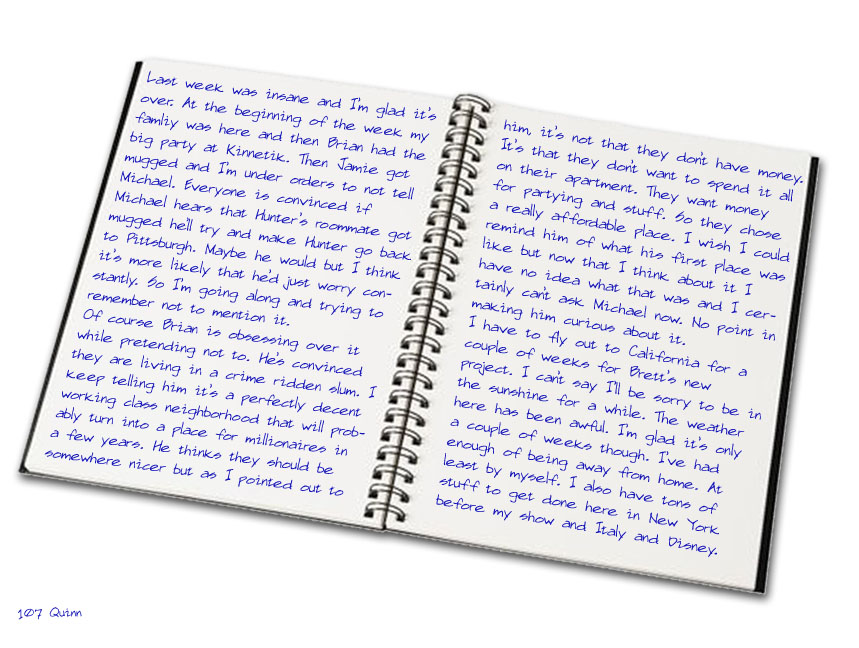 Last week was insane and I'm glad it's
over. At the beginning of the week my
famliy was here and then Brian had the
big party at Kinnetik. Then Jamie got
mugged and I'm under orders to not tell
Michael. Everyone is convinced if
Michael hears that Hunter's roommate got
mugged he'll try and make Hunter go back
to Pittsburgh. Maybe he would but I think
it's more likely that he'd just worry con-
stantly. So I'm going along and trying to
remember not to mention it.
Of course Brian is obsessing over it
while pretending not to. He's convinced
they are living in a crime ridden slum. I
keep telling him it's a perfectly decent
working class neighborhood that will prob-
ably turn into a place for millionaires in
a few years. He thinks they should be
somewhere nicer but as I pointed out to
him, it's not that they don't have money.
It's that they don't want to spend it all
on their apartment. They want money
for partying and stuff. So they chose
a really affordable place. I wish I could
remind him of what his first place was
like but now that I think about it I
have no idea what that was and I cer-
tainly can't ask Michael now. No point in
making him curious about it.
I have to fly out to California for a
couple of weeks for Brett's new
project. I can't say I'll be sorry to be in
the sunshine for a while. The weather
here has been awful. I'm glad it's only
a couple of weeks though. I've had
enough of being away from home. At
least by myself. I also have tons of
stuff to get done here in New York
before my show and Italy and Disney.
107 Quinn